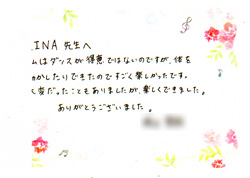 INA 先生へ
ムはダンスが得意ではないのですが、体を
かしたりできたのですごく楽しかったです。
変だったこともありましたが、楽しくできました。
ありがとうございました。